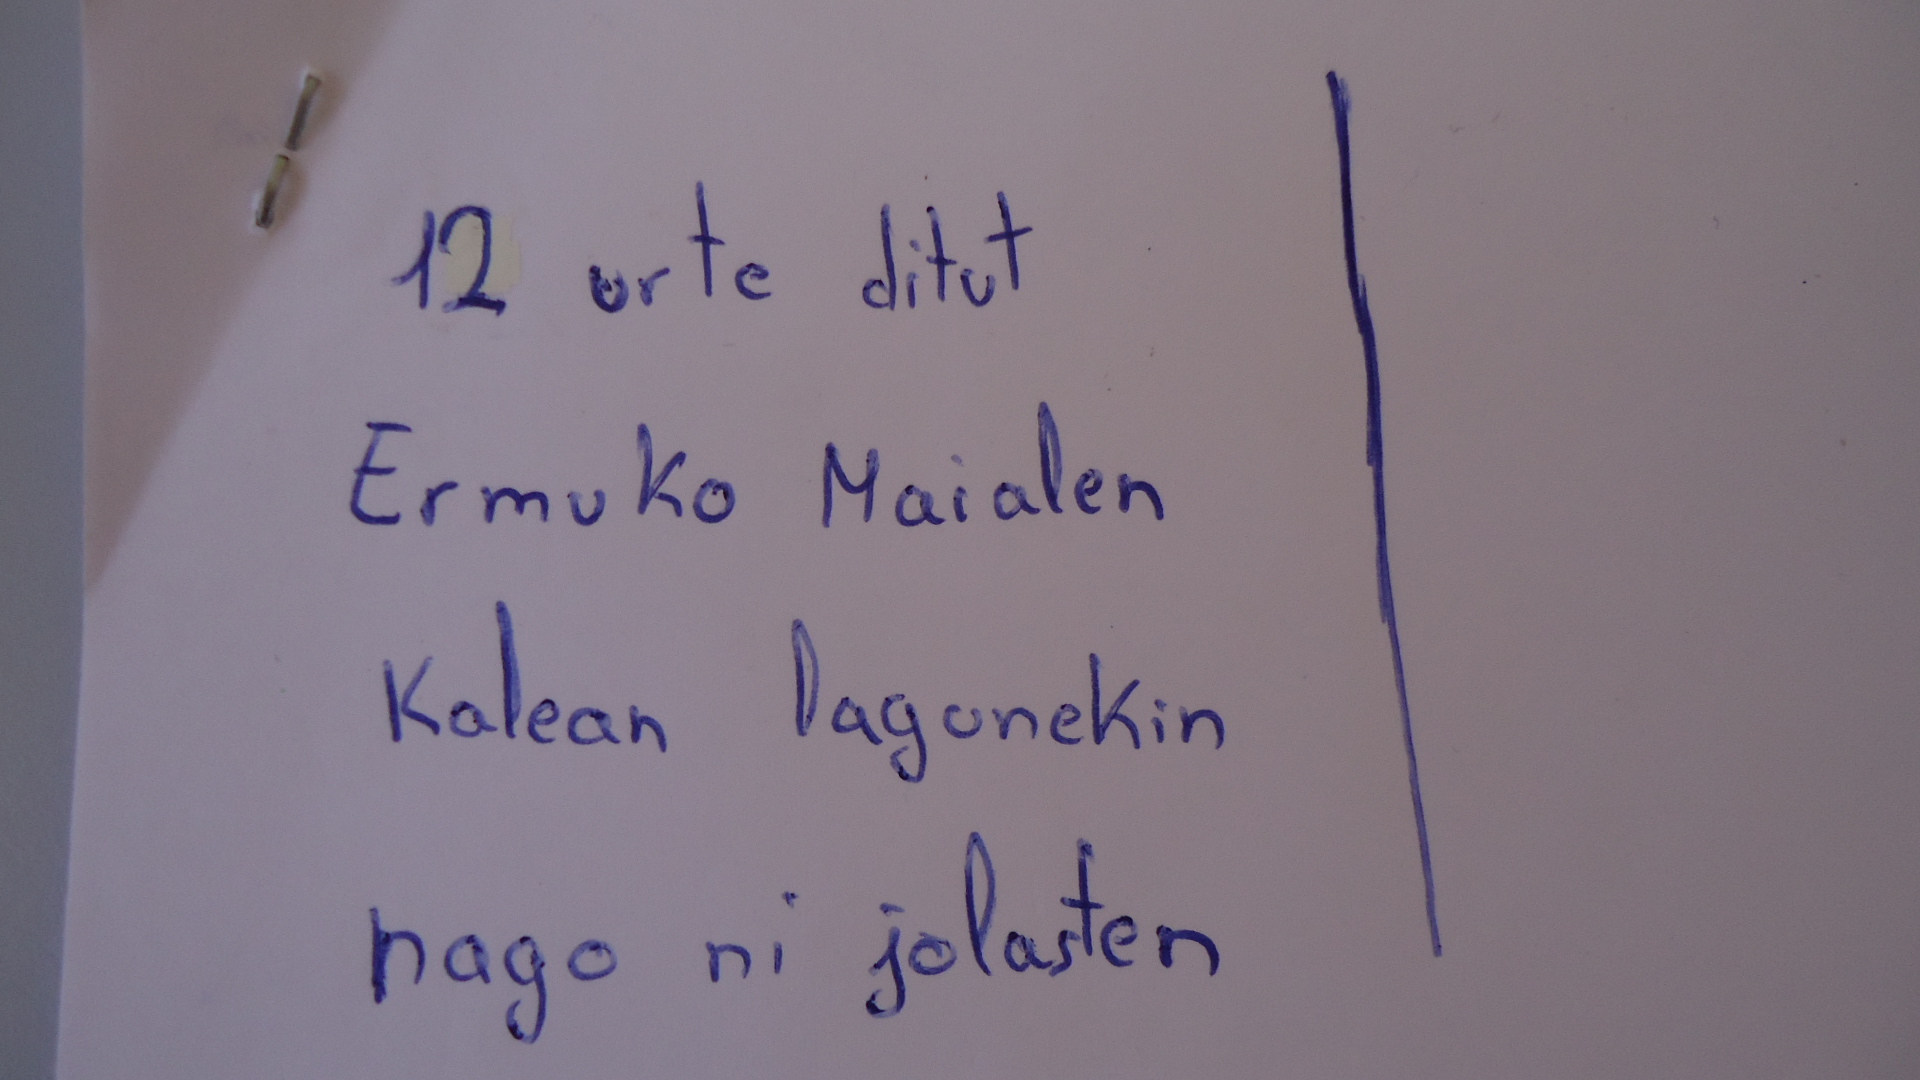 12 urte ditut
Ermuko Maialen
Kalean lagunekin
nago ni jolasten